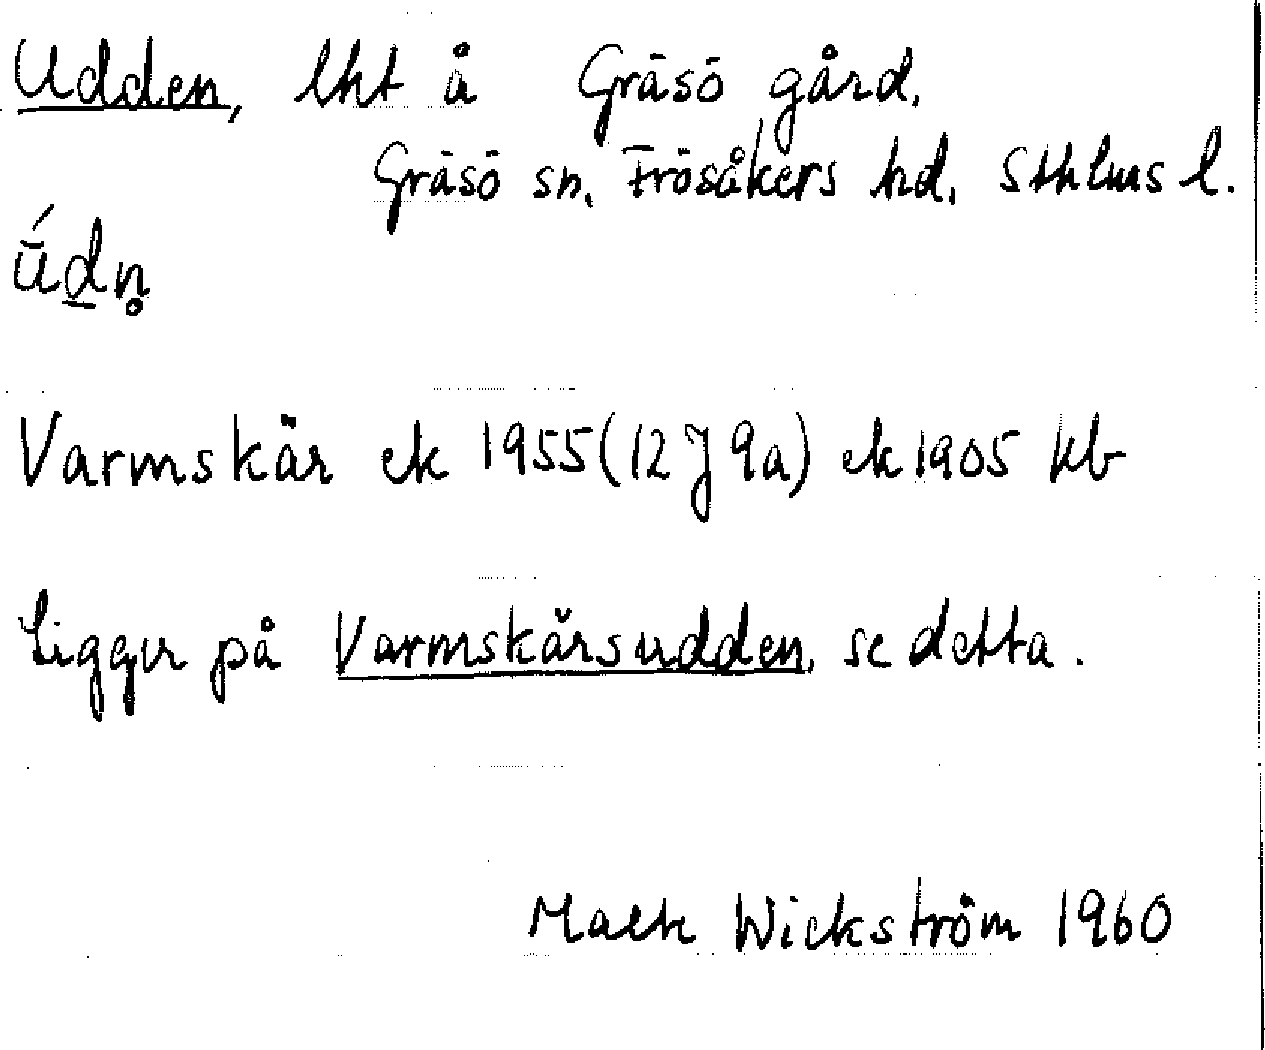 Udden, lht å Gräsö gård,
Gräsö sn, Frösåkers hd, Sthlms l.
ǘd̲n̥
Varmskär ek 1955 (12 J 9a) ek 1905 kb
Ligger på Varmskärsudden, se detta.
Wickström 1960